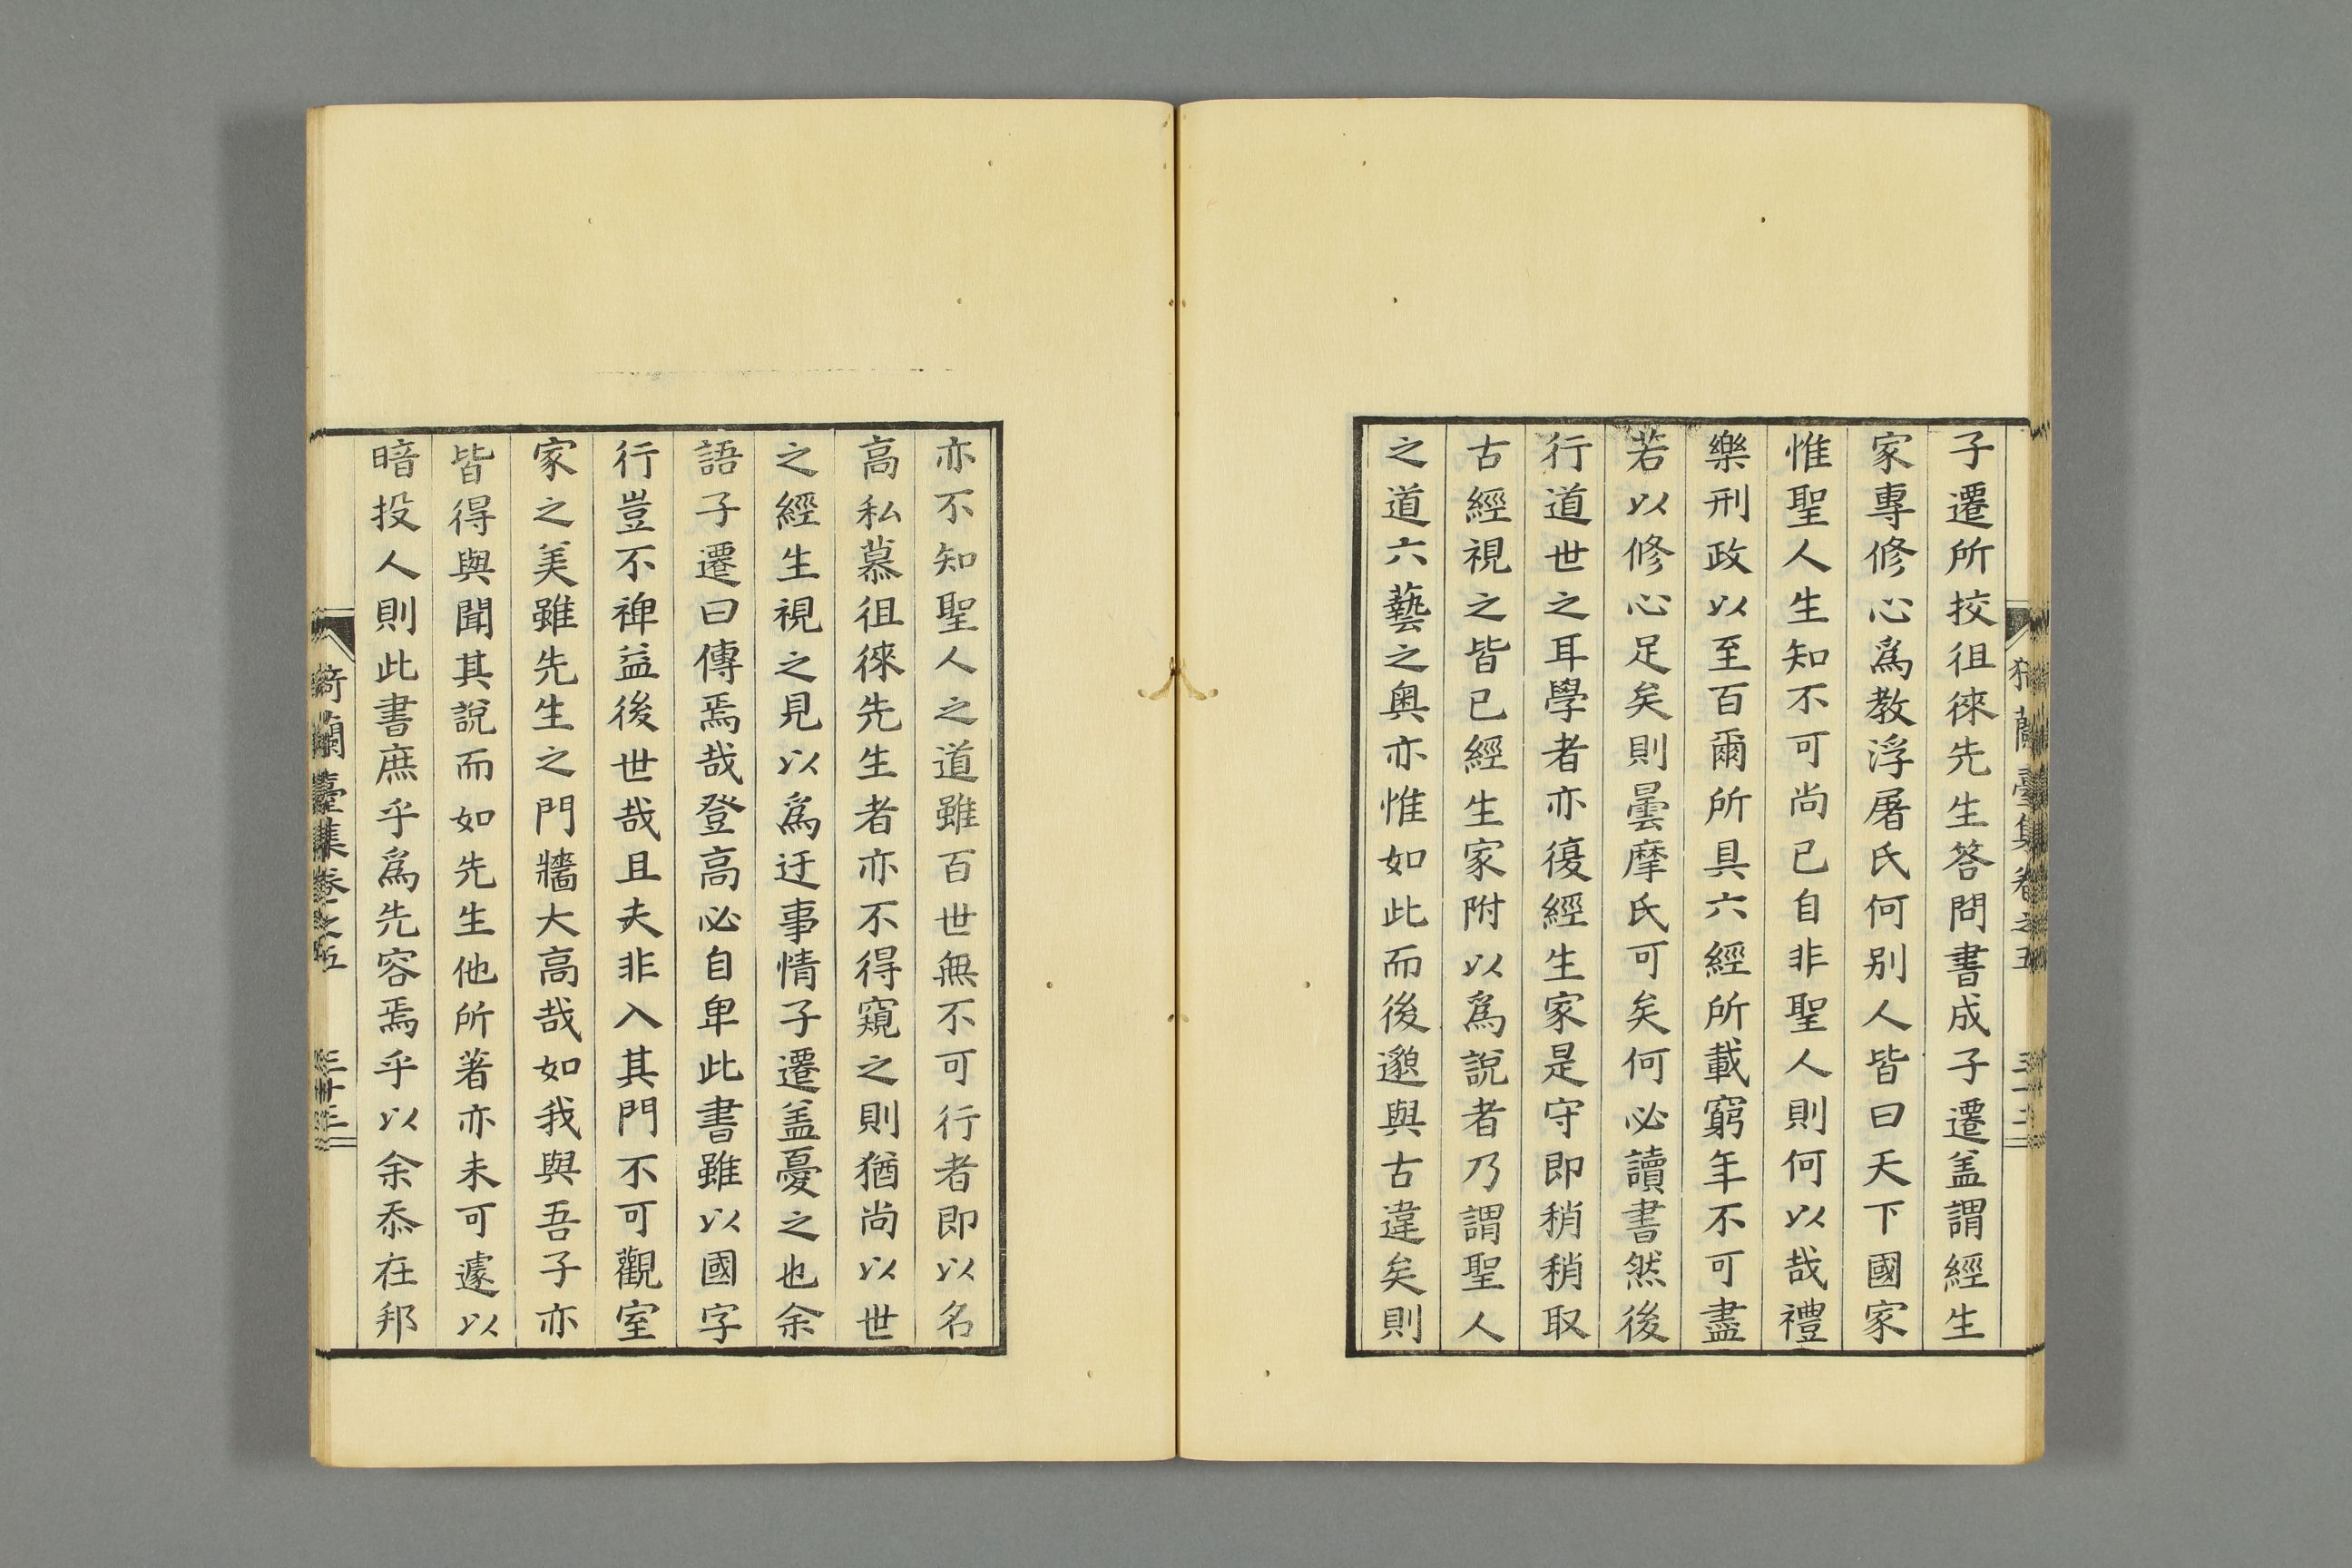 子遷所挍徂徠先生答問書成子遷盖謂經生
家專修心爲教浮屠氏何别人皆曰天下國家
惟聖人生知不可尚已自非聖人則何以哉禮
樂刑政以至百爾所具六經所載窮年不可盡
若以修心足矣則曇摩氏可矣何必讀書然後
行道世之耳學者亦復經生家是守即稍稍取
古經視之皆已經生家附以爲說者乃謂聖人
之道六藝之奥亦惟如此而後邈與古違矣則
亦不知聖人之道雖百世無不可行者即以名
高私慕徂徠先生者亦不得窺之則猶尚以世
之經生視之見以爲迂事情子遷盖憂之也余
語子遷曰傳焉哉登高必自卑此書雖以國字
行豈不裨益後世哉且夫非入其門不可觀室
家之美雖先生之門牆大高哉如我與吾子亦
皆得與聞其說而如先生他所著亦未可遽以
暗投人則此書庶乎爲先容焉乎以余忝在邦
蘭臺集卷之五
三十三